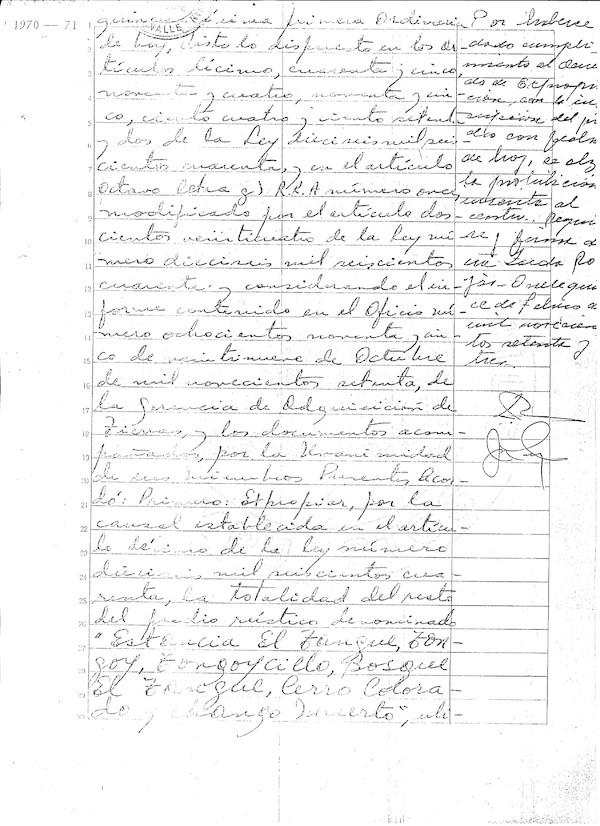 1970 — 71
VALLE
quince, décima primera Ordinaria
de hoy, visto lo dispuesto en los ar-
tículos décimo, cuarenta y cinco,
noventa y cuatro, noventa y cin-
co, ciento cuatro y ciento setenta
y dos de la Ley dieciseis mil seis-
cientos cuarenta, y en el artículo
octavo letra g) R.R.A número once,
modificado por el artículo dos-
cientos veinticuatro de la Ley nú-
mero dieciseis mil seiscientos
cuarenta y considerando el in-
forme contenido en el Oficio nú-
mero ochocientos noventa y cin-
co de veintinueve de Octubre
de mil novecientos setenta, de
la Gerencia de Adquisición de
Tierras, y los documentos acom-
pañados, por la Unanimidad
de sus miembros Presentes Acor-
dó: Primero: Expropiar, por la
causal establecida en el artícu-
lo décimo de la Ley número
dieciseis mil seiscientos cua-
renta, la totalidad del resto
del predio rústico denominado
"Estancia El Tangue, Ton-
goy, Tongoycillo, Bosque
El Tangue, Cerro Colora-
do y Chango Muerto", ubi-
Por haberse
dado cumpli-
miento al Acuer
do de Expropia
ción, con la ins
cripción del pre
dio con fecha
de hoy, se alza
la prohibición
del
mil novecien
tos setenta y
tres.